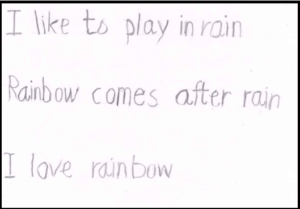 I like to play in rain
Rainbow comes after rain
I love rainbow